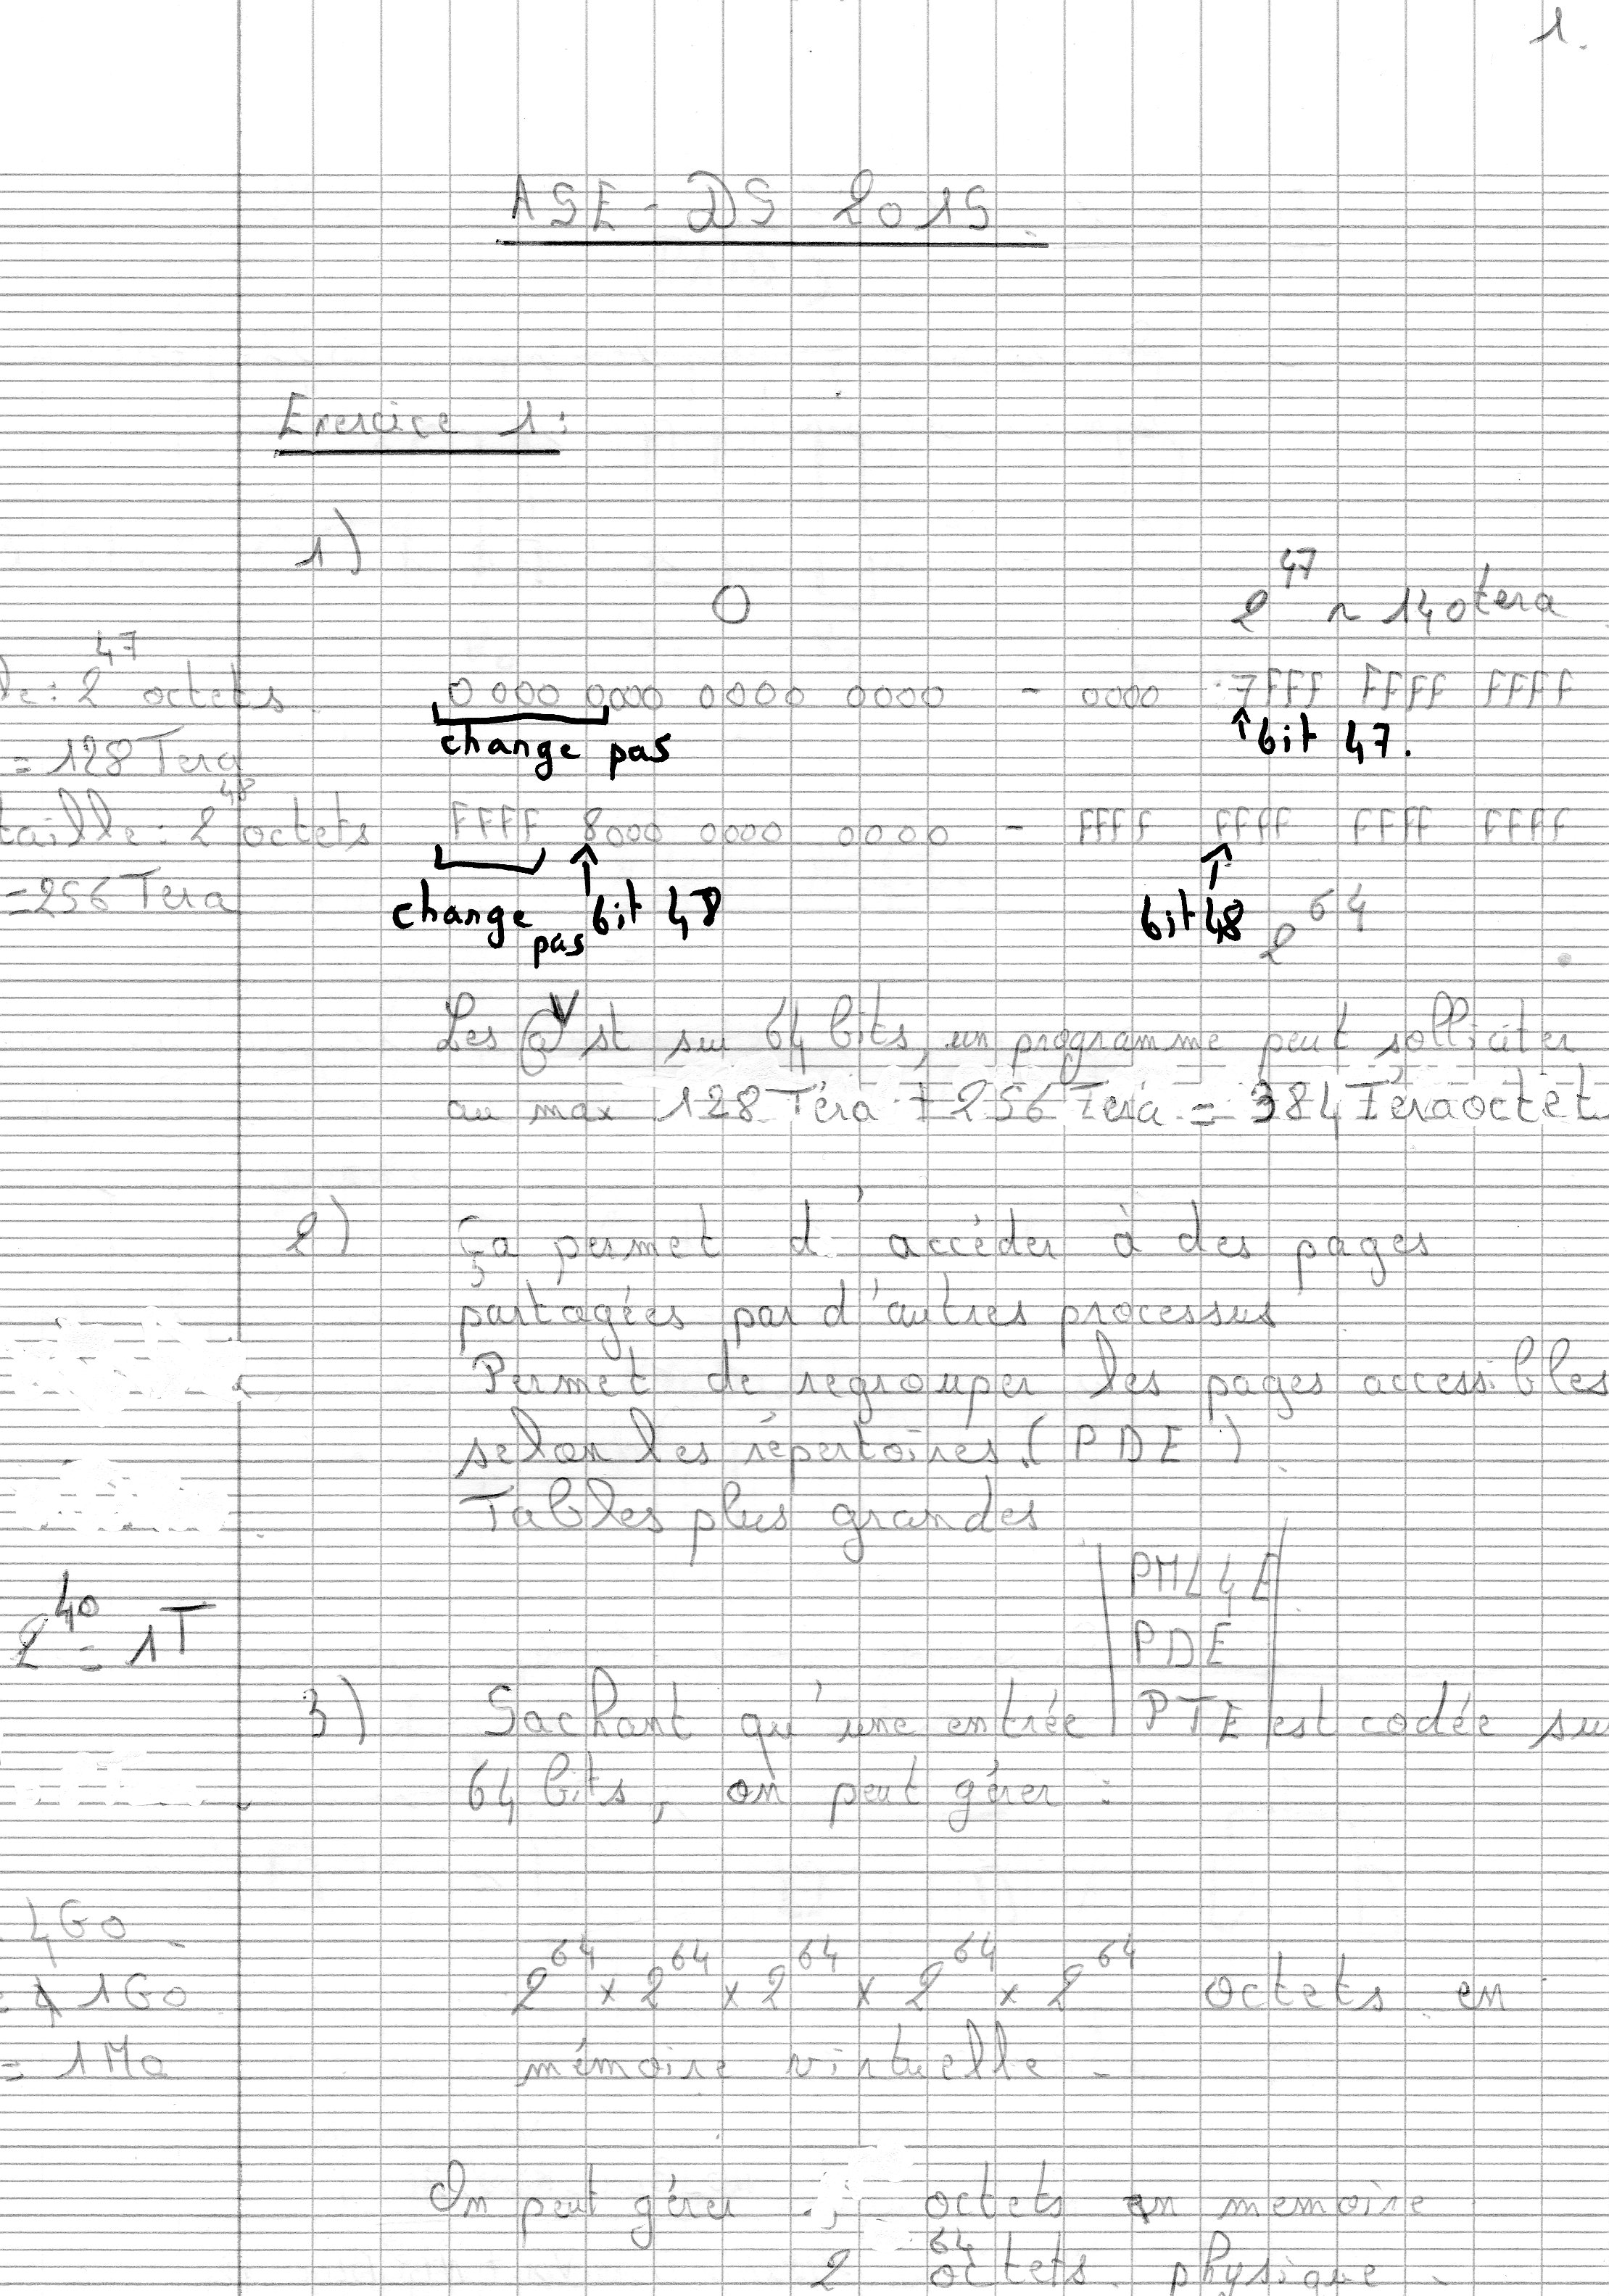 1.
ASE - DS 2015
Exercice 1:
1)
0 2^47 ~ 140 tera
2^47 octets 0000 0000 0000 0000 - 0000 7FFF FFFF FFFF
= 128 Tera change pas ↑ bit 47.
taille: 2^48 octets FFFF 8000 0000 0000 - FFFF FFFF FFFF FFFF
= 256 Tera change pas bit 48 bit 48 2^64
Les @V st sur 64 bits, un programme peut solliciter
au max 128 Téra + 256 Téra = 384 Téraoctet
2) Ça permet d'accéder à des pages
partagées par d'autres processus
Permet de regrouper les pages accessibles
selon les répertoires (PDE)
Tables plus grandes
PML4E
2^40 = 1T PDE
3) Sachant qu'une entrée PTE est codée su
64 bits, on peut gérer :
4Go
1Go 2^64 x 2^64 x 2^64 x 2^64 x 2^64 octets en
= 1Mo mémoire virtuelle.
On peut gérer octets en memoire
2^64 octets physique.